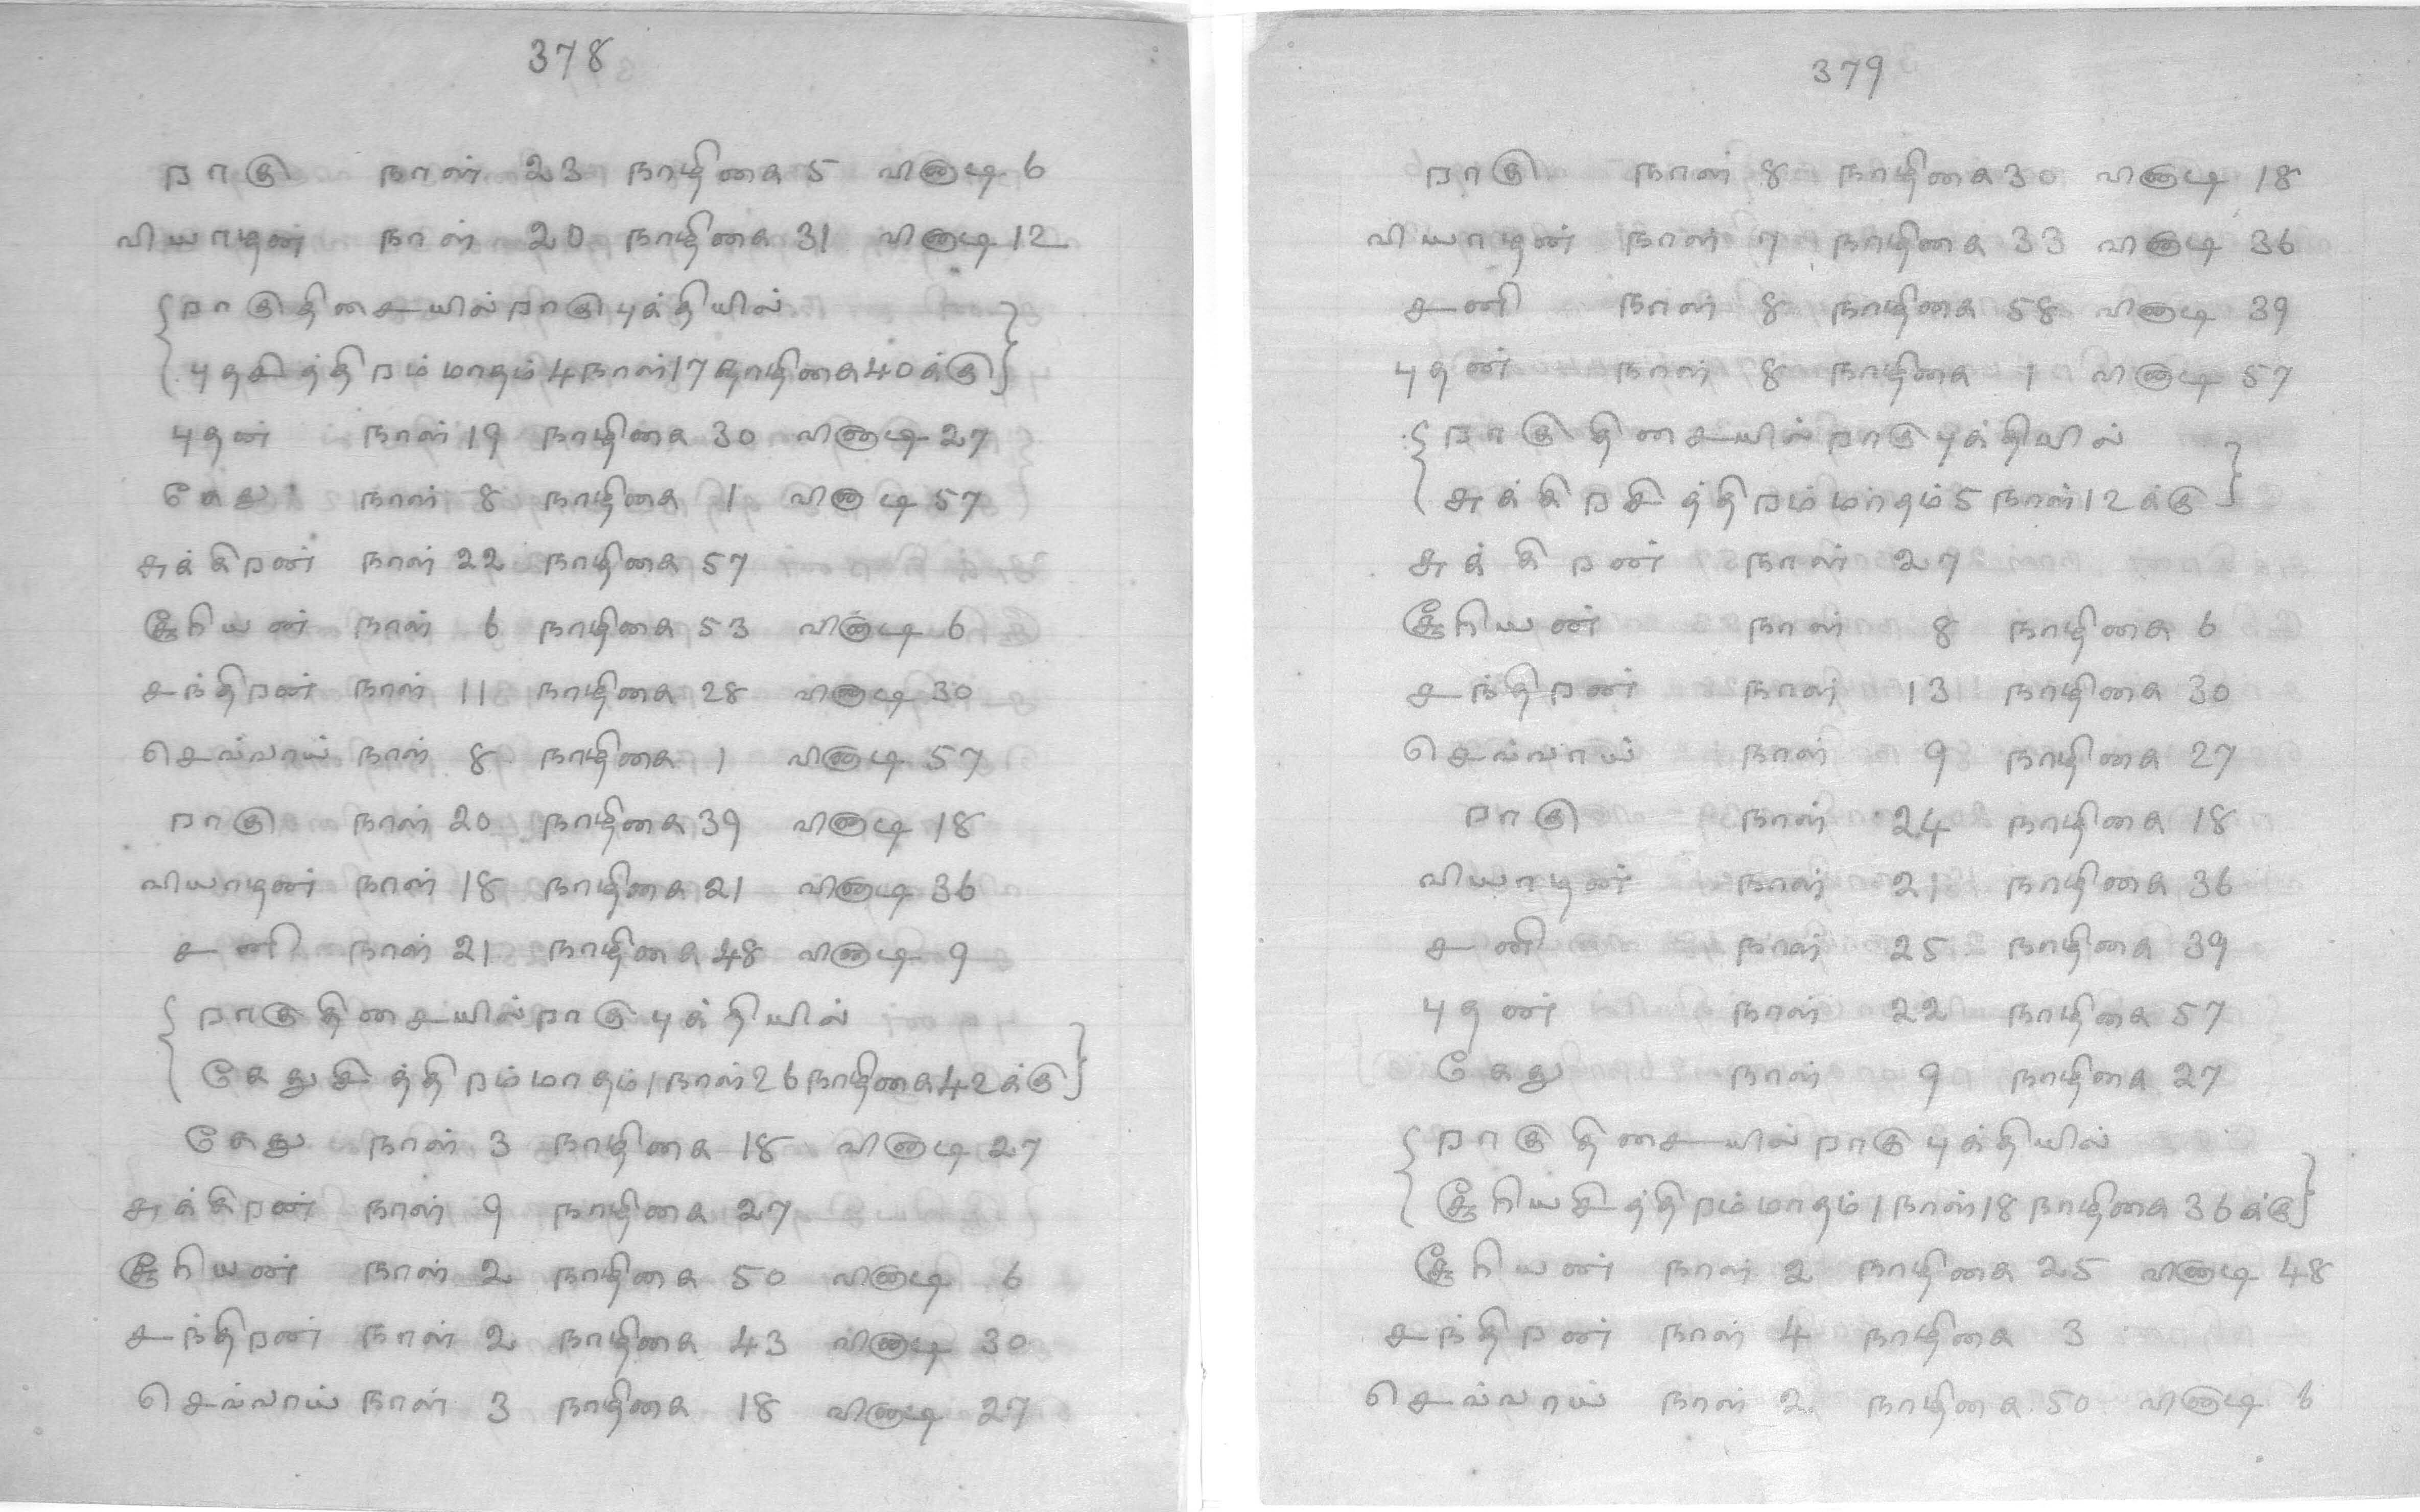 378
றாகு நாள் 23 நாழிகை 5 வினாடி 6
வியாழன் நாள் 20 நாழிகை 31 வினாடி 12
{றாகு திசையில் றாகு புக்தியில்
புதசித்திறம் மாதம் 4 நாள் 17 நாழிகை 40க்கு}
புதன் நாள் 19 நாழிகை 30 வினாடி 27
கேது நாள் 8 நாழிகை 1 வினாடி 57
சுக்கிறன் நாள் 22 நாழிகை 57
சூரியன் நாள் 6 நாழிகை 53 வினாடி 6
சந்திறன் நாள் 11 நாழிகை 28 வினாடி 30
செவ்வாய் நாள் 8 நாழிகை 1 வினாடி 57
றாகு நாள் 20 நாழிகை 39 வினாடி 18
வியாழன் நாள் 18 நாழிகை 21 வினாடி 36
சனி நாள் 21 நாழிகை 48 வினாடி 9
{றாகு திசையில் றாகு புக்தியில்
கேது சித்திறம் மாதம் 1 நாள் 26 நாழிகை 42க்கு}
கேது நாள் 3 நாழிகை 18 வினாடி 27
சுக்கிறன் நாள் 9 நாழிகை 27
சூரியன் நாள் 2 நாழிகை 50 வினாடி 6
சந்திறன் நாள் 2 நாழிகை 43 வினாடி 30
செவ்வாய் நாள் 3 நாழிகை 18 வினாடி 27
379
றாகு நாள் 8 நாழிகை 30 வினாடி 18
வியாழன் நாள் 7 நாழிகை 33 வினாடி 36
சனி நாள் 8 நாழிகை 58 வினாடி 39
புதன் நாள் 8 நாழிகை 1 வினாடி 57
{றாகு திசையில் றாகு புக்தியில்
சுக்கிறசித்திறம் மாதம் 5 நாள் 12க்கு}
சுக்கிறன் நாள் 27
சூரியன் நாள் 8 நாழிகை 6
சந்திறன் நாள் 13 நாழிகை 30
செவ்வாய் நாள் 9 நாழிகை 27
றாகு நாள் 24 நாழிகை 18
வியாழன் நாள் 21 நாழிகை 36
சனி நாள் 25 நாழிகை 39
புதன் நாள் 22 நாழிகை 57
கேது நாள் 9 நாழிகை 27
{றாகு திசையில் றாகு புக்தியில்
சூரியசித்திறம் மாதம் 1 நாள் 18 நாழிகை 36க்கு}
சூரியன் நாள் 2 நாழிகை 25 வினாடி 48
சந்திறன் நாள் 4 நாழிகை 3
செவ்வாய் நாள் 2 நாழிகை 50 வினாடி 6